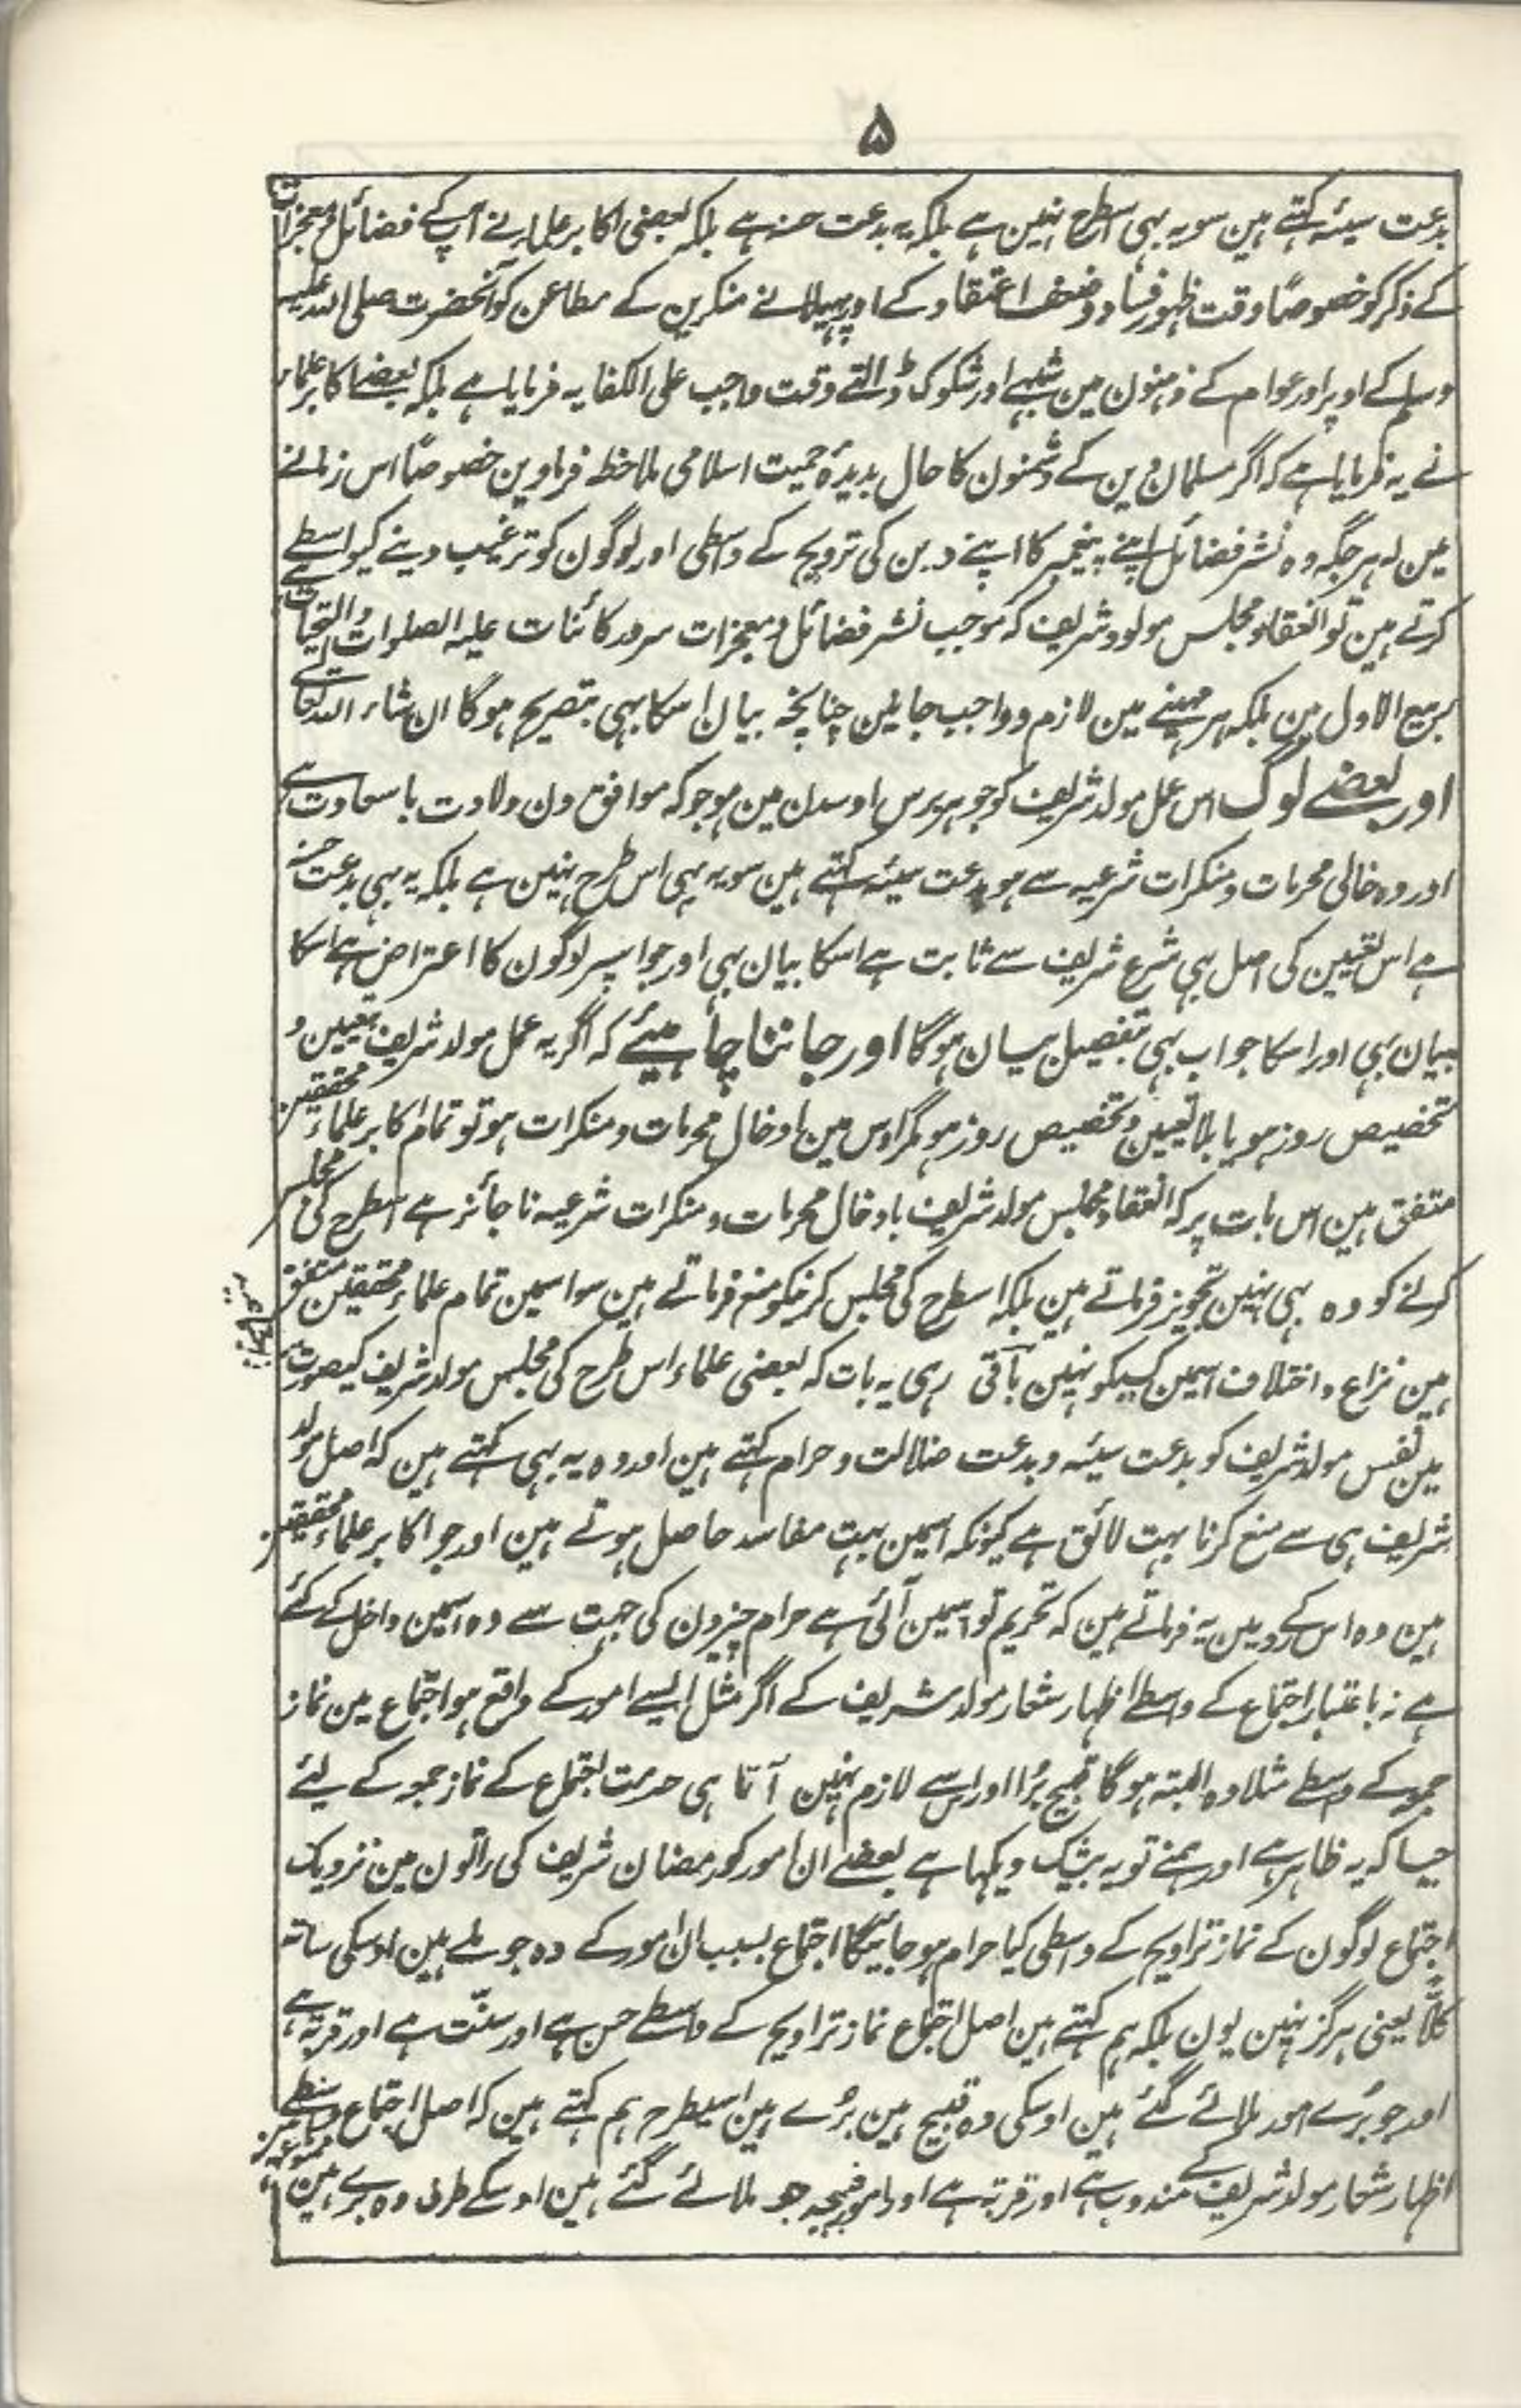 ۵
بدعت سیئہ کہتے ہین سو یہ بہی اسطرح نہین ہے بلکہ یہ بدعت حسنہ ہے بلکہ بعضی اکابر علماء نے آپکے فضائل و معجزات
کے ذکر کو خصوصًا وقت ظہور فساد و ضعف اعتقاد کے اور پہیلانے منکرین کے مطاعن کو آنحضرت صلی اللہ علیہ
وسلم کے اوپر اور عوام کے ذہنون مین شبہے اور شکوک ڈالتے وقت واجب علی الکفایہ فرمایا ہے بلکہ بعضے اکابر علماء
نے یہ فرمایا ہے کہ اگر مسلمان دین کے دشمنون کا حال بدیدۂ حمیت اسلامی ملاحظہ فرماوین خصوصًا اس زمانے
مین کہ ہر جگہ وہ نشر فضائل اپنے پیغمبر کا اپنے دین کی ترویج کے واسطی اور لوگون کو ترغیب دینے کیواسطے
کرتے ہین تو انعقاد مجلس مولود شریف کہ موجب نشر فضائل و معجزات سرور کائنات علیہ الصلوات والتحیات ہے
ربیع الاول مین بلکہ ہر مہینے مین لازم و واجب جانین چنانچہ بیان اسکا بہی بتصریح ہوگا ان شاء اللہ تعالے
اور بعضے لوگ اس عمل مولد شریف کو جو ہر برس اوسدن مین ہو جو کہ موافق دن ولادت با سعادت ہے
اور وہ خالی محرمات و منکرات شرعیہ سے ہو بدعت سیئہ کہتے ہین سو یہ بہی اس طرح نہین ہے بلکہ یہ بہی بدعت حسنہ
ہے اس تعیین کی اصل بہی شرع شریف سے ثابت ہے اسکا بیان بہی اور جو اسپر لوگون کا اعتراض ہے اسکا
بیان بہی اور اسکا جواب بہی بتفصیل بیان ہوگا اور جاننا چاہیئے کہ اگر یہ عمل مولد شریف بتعیین و
تخصیص روز ہو یا بلا تعیین و تخصیص روز ہو مگر اوس مین ادخال محرمات و منکرات ہو تو تمام اکابر علماء محققین
متفق ہین اس بات پر کہ انعقاد مجلس مولد شریف بادخال محرمات و منکرات شرعیہ ناجائز ہے اسطرح کی مجلس
کرنے کو وہ بہی نہین تجویز فرماتے ہین بلکہ اسطرح کی مجلس کرنیکو منع فرماتے ہین سو اسمین تمام علماء محققین متفق
ہین نزاع و اختلاف اسمین کسیکو نہین باقی رہی یہ بات کہ بعضی علماء اس طرح کی مجلس مولد شریف کیصورت
مین نفس مولد شریف کو بدعت سیئہ و بدعت ضلالت و حرام کہتے ہین اور وہ یہ بہی کہتے ہین کہ اصل مولد
شریف ہی سے منع کرنا بہت لائق ہے کیونکہ اسمین بہت مفاسد حاصل ہوتے ہین اور جو اکابر علماء محققین
ہین وہ اس کے رد مین یہ فرماتے ہین کہ تحریم تو اسمین آئی ہے حرام چیزون کی جہت سے وہ اسمین داخل کے گئے
ہے نہ باعتبار اجتماع کے واسطے اظہار شعار مولد شریف کے اگر مثل ایسے امور کے واقع ہو اجتماع مین نماز
جمعہ کے واسطے مثلا وہ البتہ ہوگا قبیح برُا اور اس سے لازم نہین آتا ہی حرمت اجتماع کے نماز جمعہ کے لیئے
جیسا کہ یہ ظاہر ہے اور ہمنے تو یہ بیشک دیکہا ہے بعضے ان امور کو رمضان شریف کی راتون مین نزدیک
اجتماع لوگون کے نماز تراویح کے واسطی کیا حرام ہو جائیگا اجتماع بسبب ان امور کے وہ جو ملے ہین اوسکی ساتہ
کلّا یعنی ہرگز نہین یون بلکہ ہم کہتے ہین اصل اجتماع نماز تراویح کے واسطے حسن ہے اور سنّت ہے اور قربۃ ہے
اور جو برُے امور ملائے گئے ہین اوسکی وہ قبیح ہین برُے ہین اسیطرح ہم کہتے ہین کہ اصل اجتماع واسطے
اظہار شعار مولد شریف کے مندوب ہے اور قربۃ ہے اور امور قبیحہ جو ملائے گئے ہین اوسکے طرف وہ برے ہین